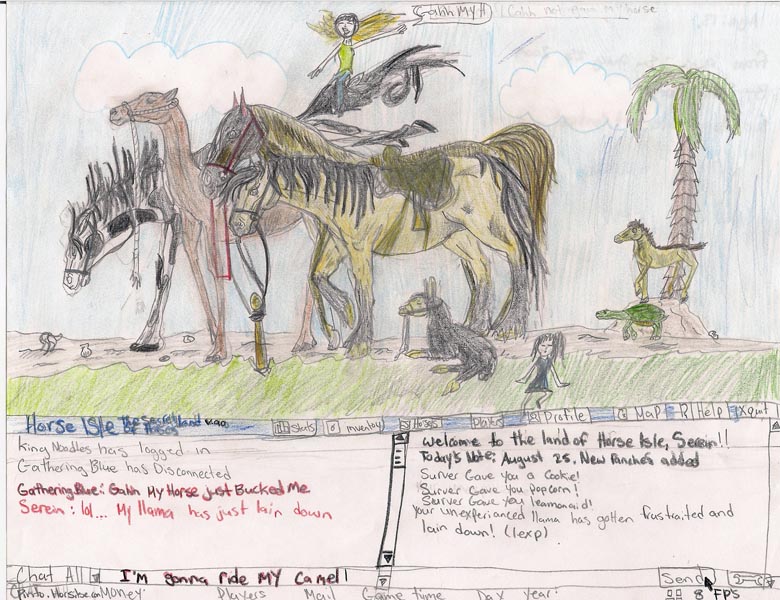 Gahh MY H
Gahh not again my horse
Horse Isle The Secret land of Horses
stats
inventory
Horses
Players
Profile
Map
Help
Xquit
King Noodles has logged in
Gathering Blue has Disconnected
Gathering Blue: Gahh My Horse just Bucked Me
Serein: lol... My llama has just lain down
welcome to the land of Horse Isle, Serein!!
Today's Note: August 25. New Ranches added
Surver Gave you a Cookie!
Surver Gave You popcorn!
Seurver Gave You leamonaid!
Your unexperienced llama has gotten frustraited and
lain down! (1exp)
Chat All
I'm gonna ride MY Camel!
Send
Pinto.Horseisle.com
Money:
Players
Mail
Game time
Day
year:
8 FPS